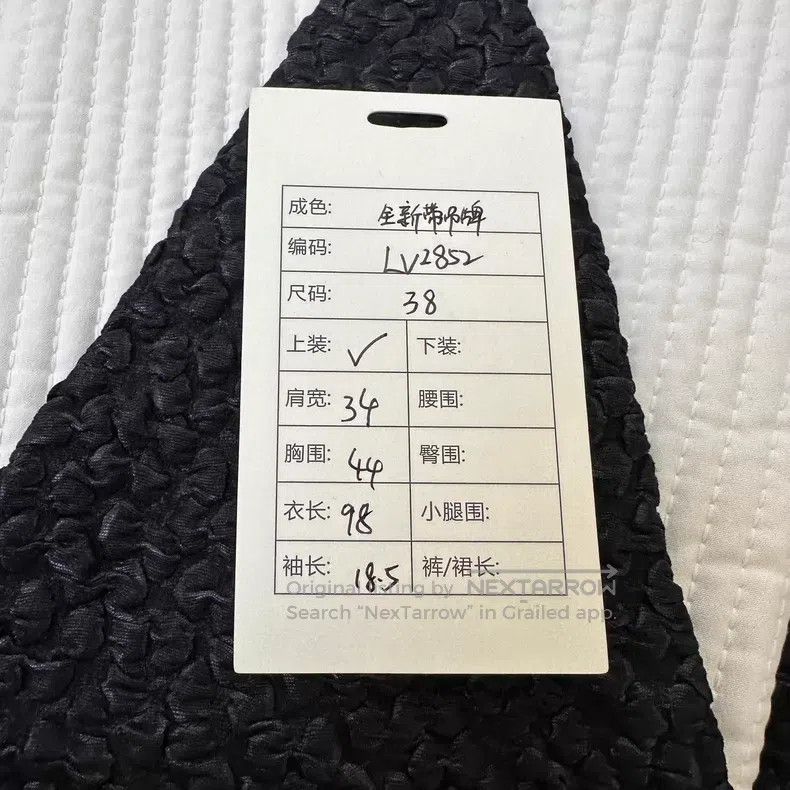 成色: 全新带吊牌
编码: LV2852
尺码: 38
上装: ✓ 下装:
肩宽: 34 腰围:
胸围: 44 臀围:
衣长: 98 小腿围:
袖长: 18.5 裤/裙长:
Original listing by NEXTARROW
Search “NexTarrow” in Grailed app.